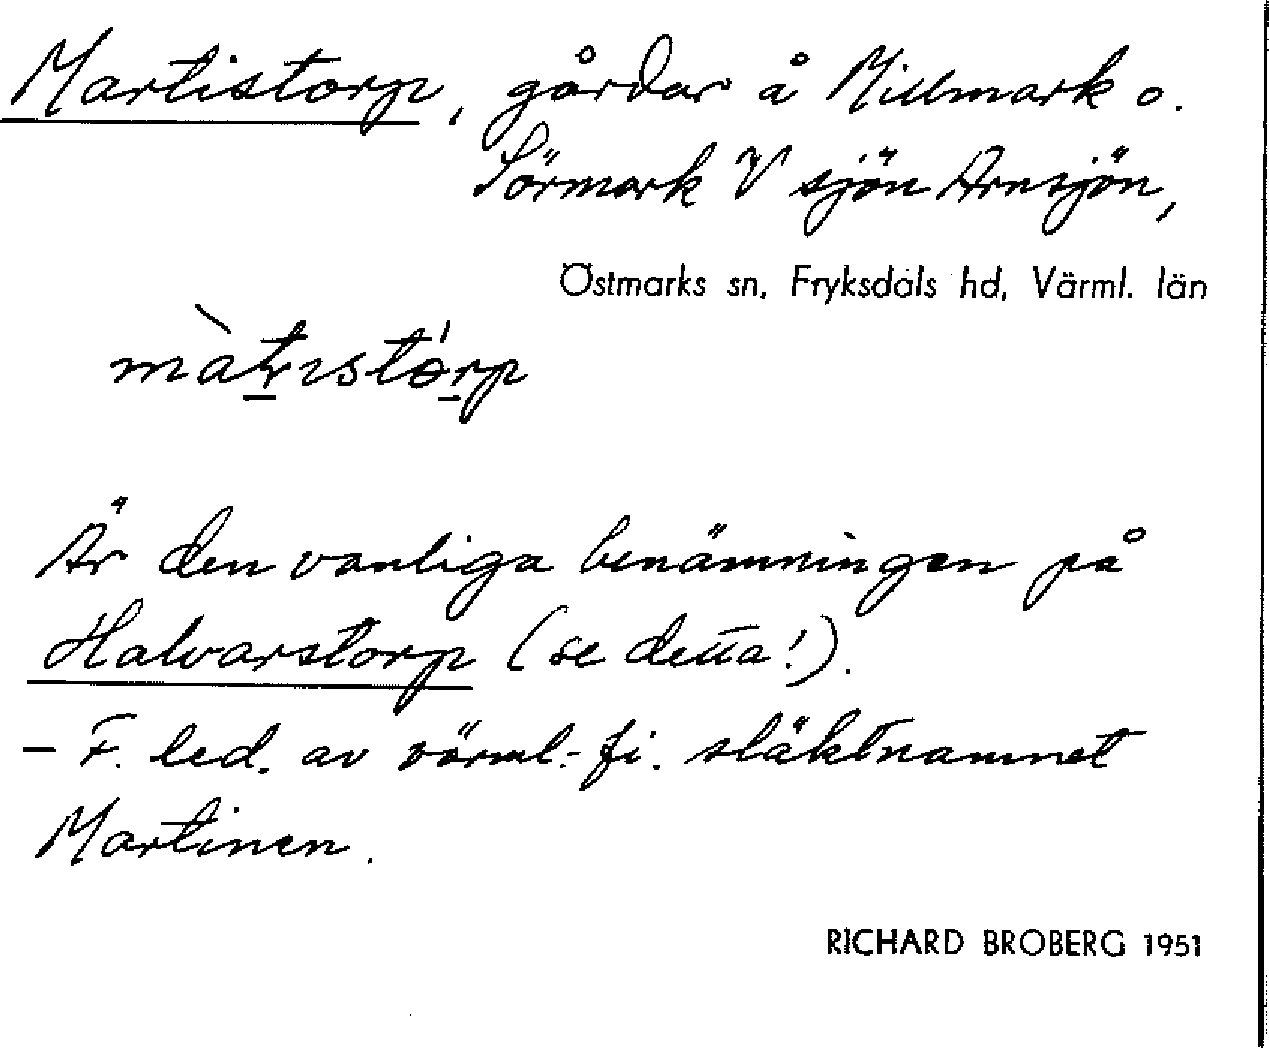 Martistorp, gårdar å Millmark o.
Sörmark V sjön Arnsjön,
Östmarks sn, Fryksdals hd, Värml. län
Är den vanliga benämningen på
Halvarstorp (se detta!).
— F. led. av värml.-fi. släktnamnet
Martinen.
RICHARD BROBERG 1951